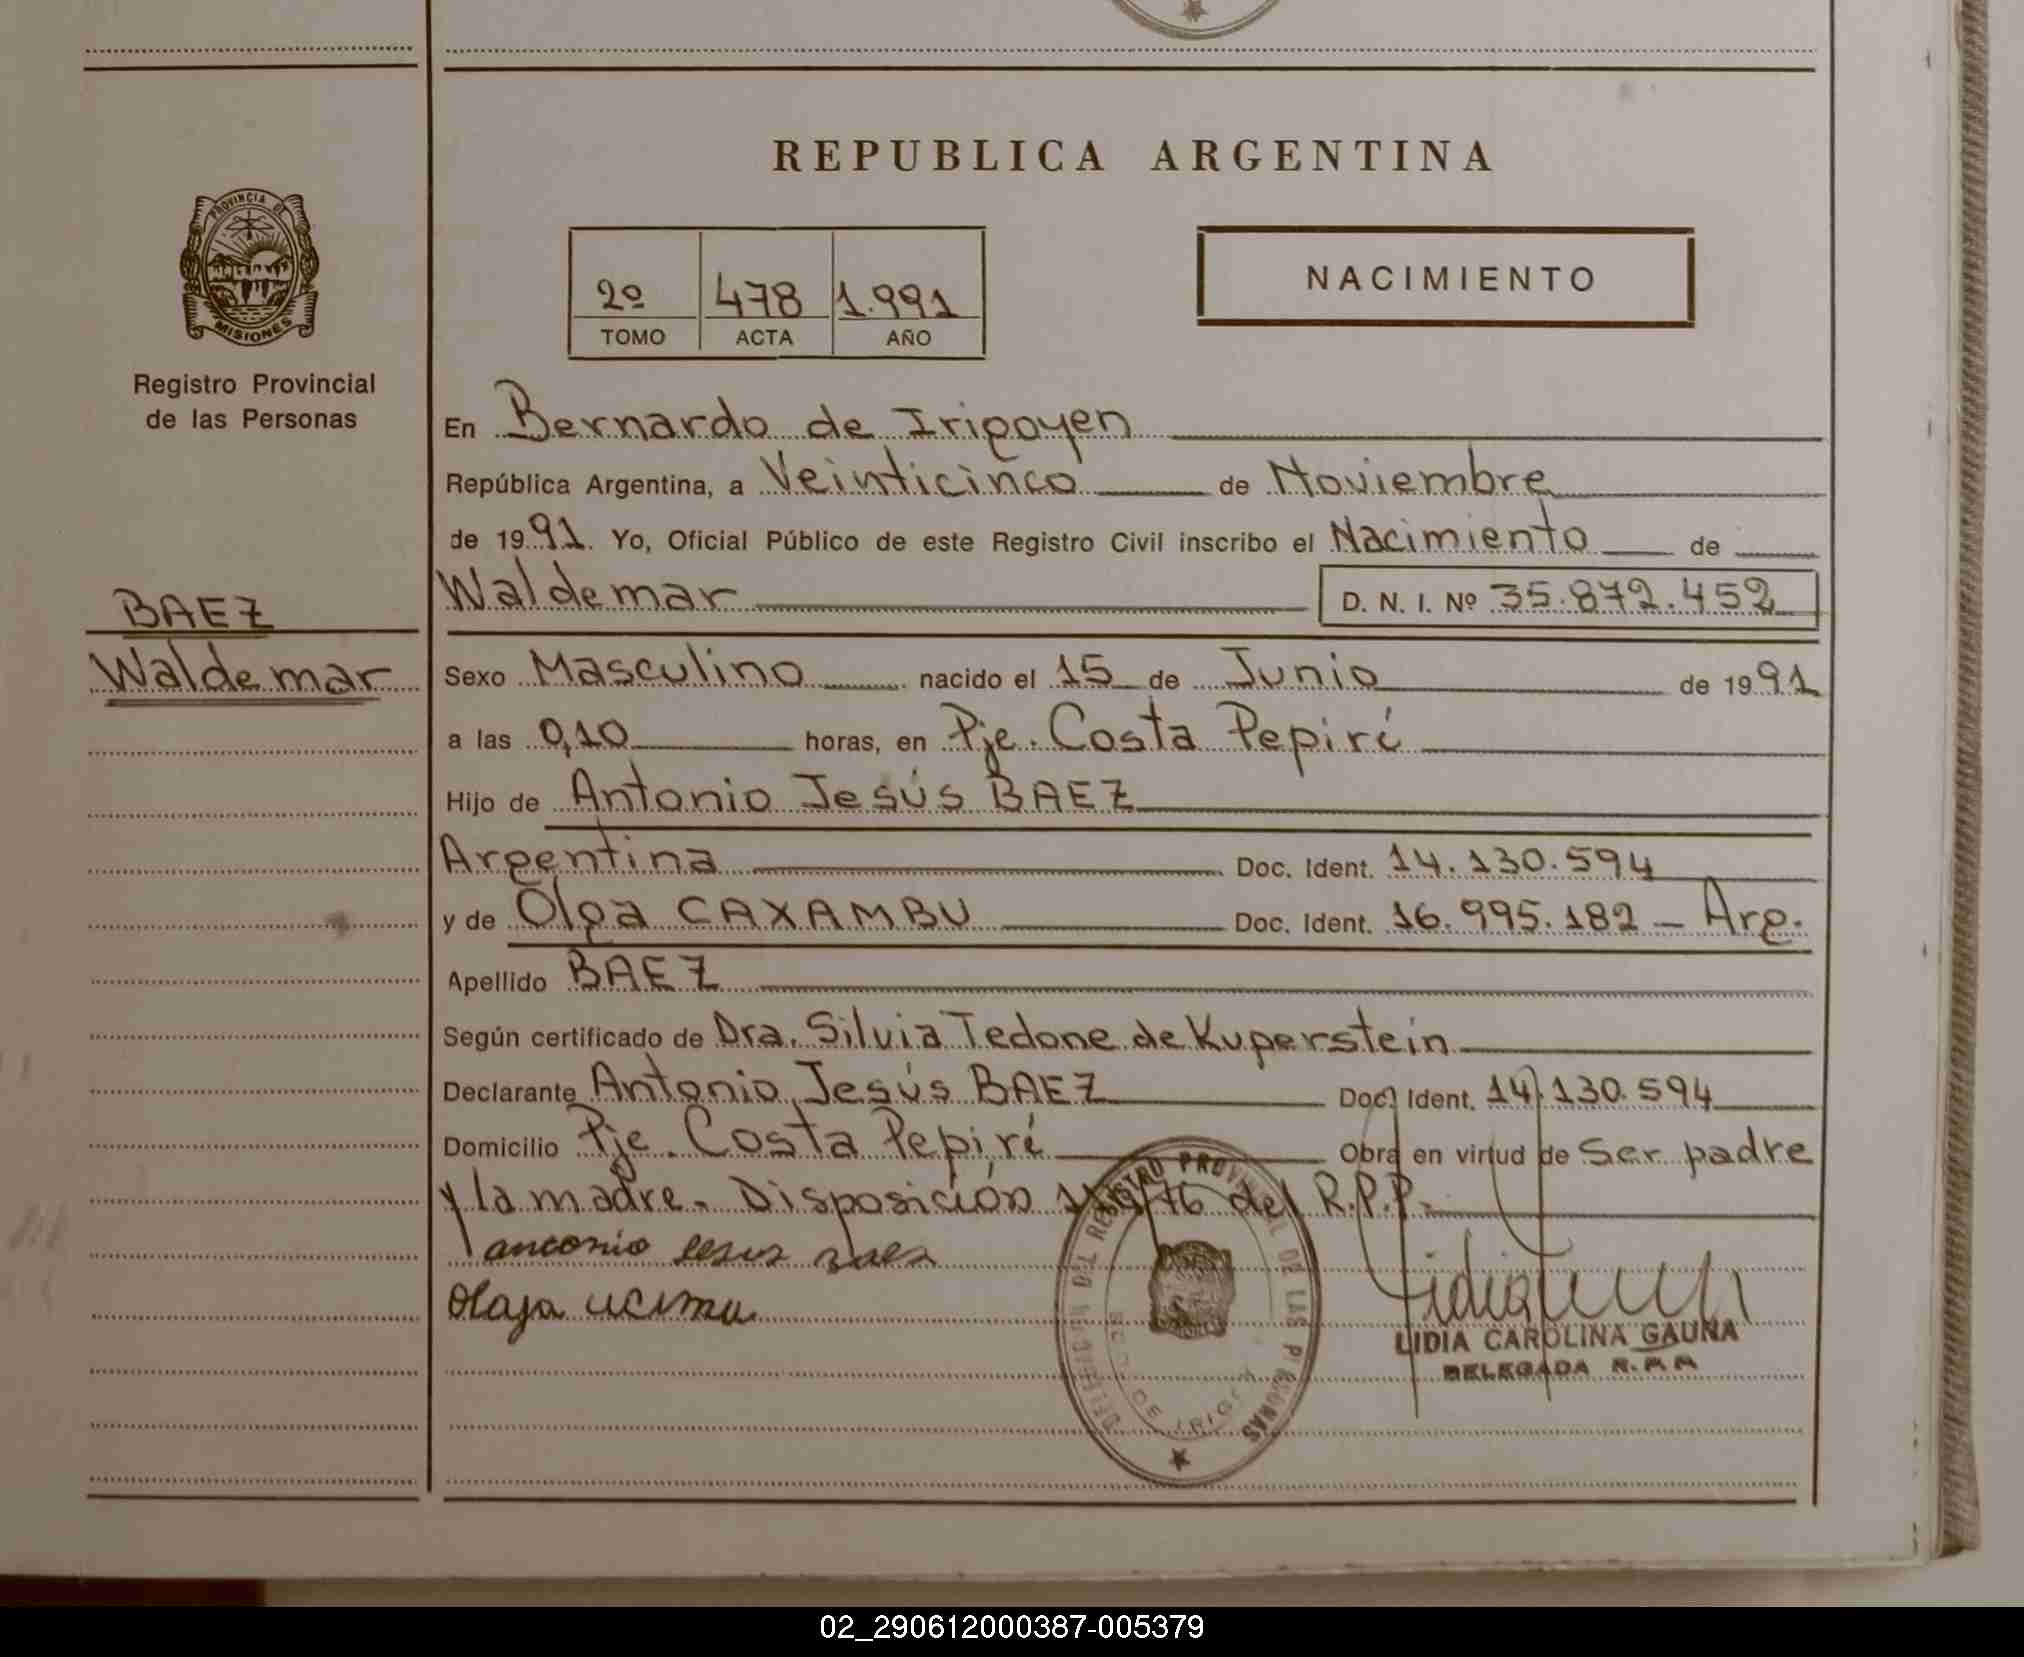 REPUBLICA ARGENTINA
PROVINCIA DE
MISIONES
Registro Provincial
de las Personas
2º 478 1.991
TOMO ACTA AÑO
NACIMIENTO
En Bernardo de Irigoyen
República Argentina, a Veinticinco de Noviembre
de 1991. Yo, Oficial Público de este Registro Civil inscribo el Nacimiento de
BAEZ
Waldemar
Waldemar D. N. I. Nº 35.872.452
Sexo Masculino nacido el 15 de Junio de 1991
a las 0,10 horas, en Pje. Costa Pepirí
Hijo de Antonio Jesús BAEZ
Argentina Doc. Ident. 14.130.594
y de Olga CAXAMBU Doc. Ident. 16.995.182 - Arg.
Apellido BAEZ
Según certificado de Dra. Silvia Tedone de Kuperstein
Declarante Antonio Jesús BAEZ Doc. Ident. 14.130.594
Domicilio Pje. Costa Pepirí Obra en virtud de Ser padre
y la madre. Disposición /76 del R.P.P.
antonio
LIDIA CAROLINA GAUNA
DELEGADA R.P.P.
DEL REGISTRO PROVINCIAL DE LAS PERSONAS
DE IRIGOYEN
02_290612000387-005379